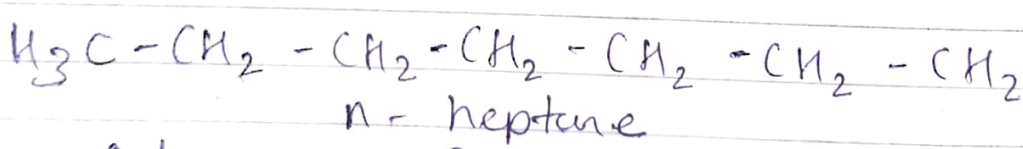 H₃C - CH₂ - CH₂ - CH₂ - CH₂ - CH₂ - CH₂
n - heptane